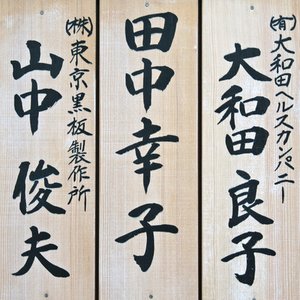 (有)大和田ヘルスカンパニー
大和田良子
田中幸子
(株)東京黒板製作所
山中俊夫